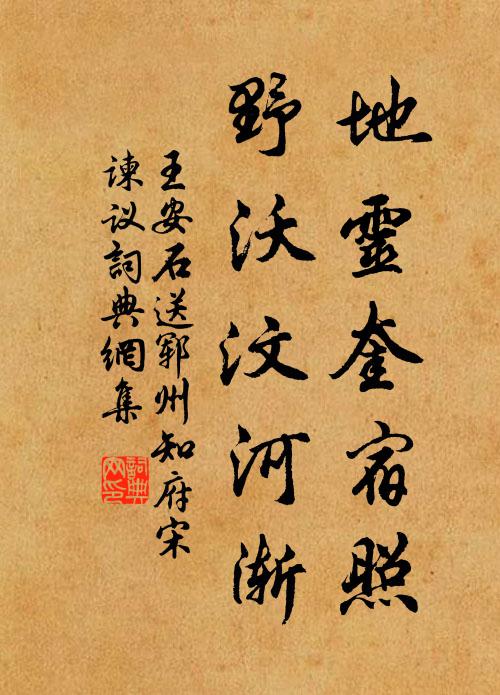 地靈奎宿照
野沃汶河渐
王安石送郓州知府宋
谏议詞典網集
詞典